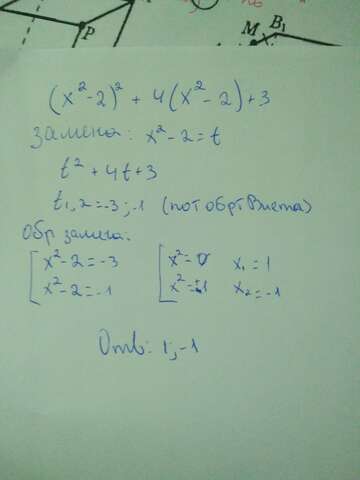 P
M B₁
(x²-2)² + 4(x²-2)+3
замена: x²-2=t
t²+4t+3
t₁,₂=-3;-1 (по т обр т Виета)
Обр замена:
[x²-2=-3 [x²= x₁=1
x²-2=-1 x²=1 x₂=-1
Отв: 1;-1